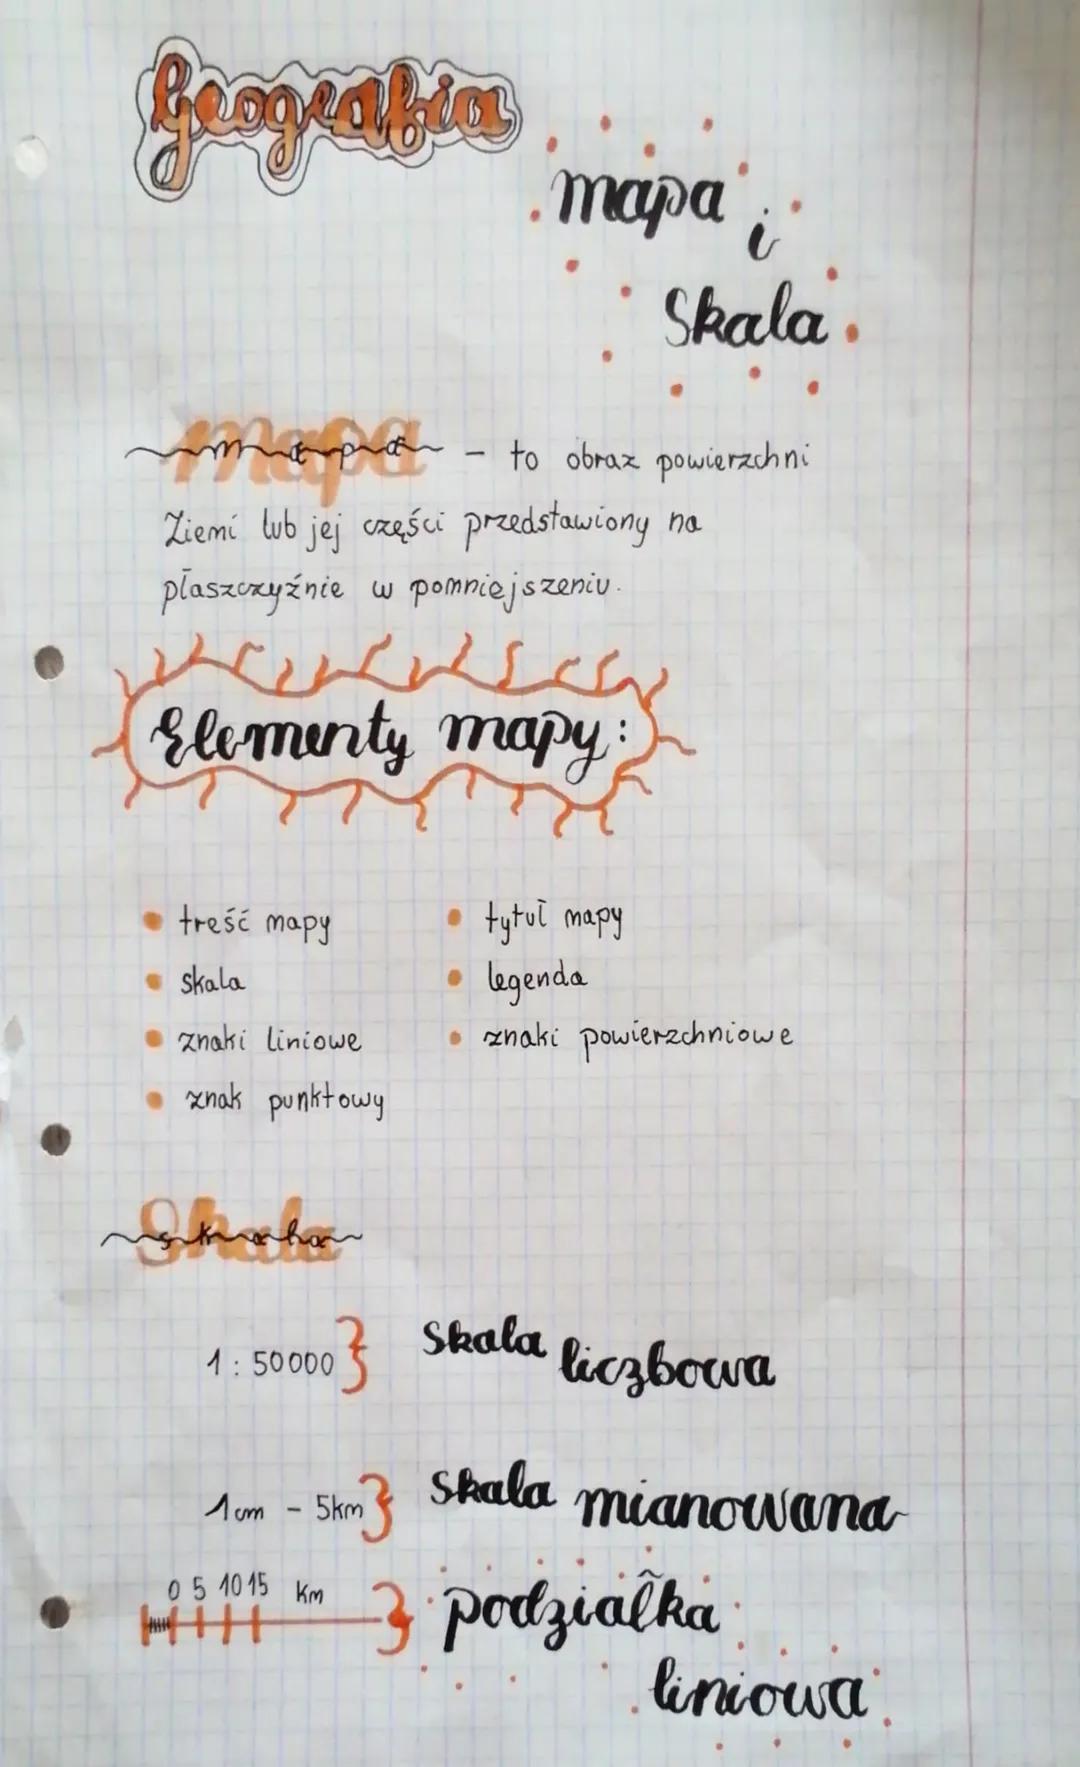 Geografia
mapa
i
Skala
mapa
mapa - to obraz powierzchni
Ziemi lub jej części przedstawiony na
płaszczyźnie w pomniejszeniu.
Elementy mapy:
• treść mapy • tytuł mapy
• skala • legenda
• znaki liniowe • znaki powierzchniowe
• znak punktowy
Skala
skala
1:50000} Skala liczbowa
1cm - 5km} Skala mianowana
0 5 10 15 km } podziałka
liniowa